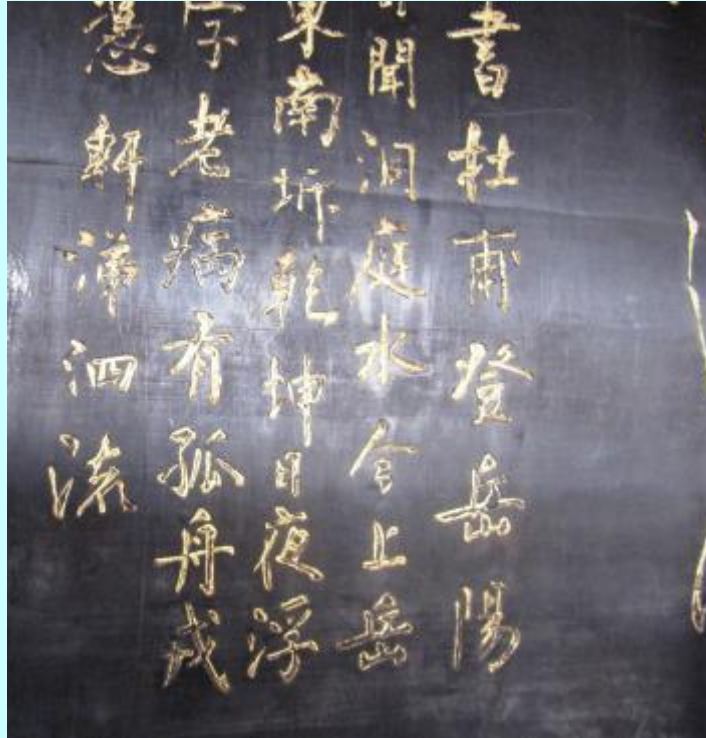 書杜甫登岳陽
聞洞庭水今上岳
東南坼乾坤日夜浮
字老病有孤舟戎
憑軒涕泗流